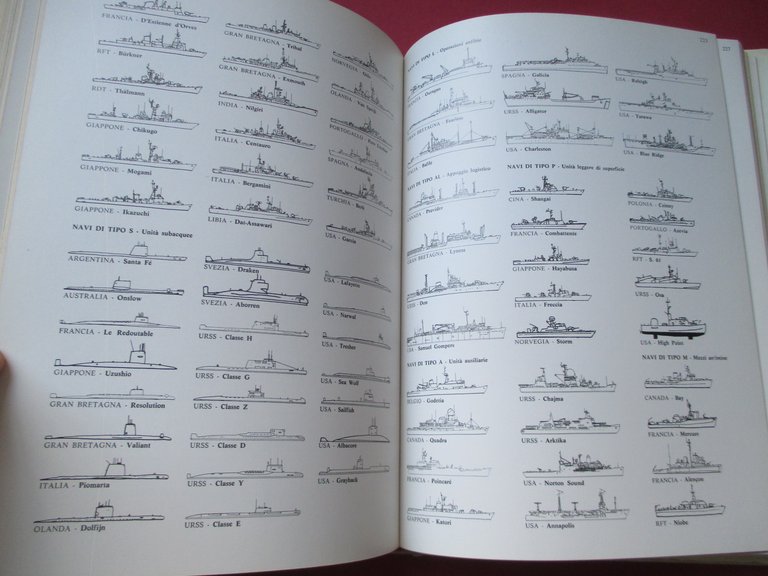 FRANCIA - D'Estienne d'Orves
RFT - Bürkner
RDT - Thälmann
GIAPPONE - Chikugo
GIAPPONE - Mogami
GIAPPONE - Ikazuchi
GRAN BRETAGNA - Tribal
GRAN BRETAGNA - Exmouth
INDIA - Nilgiri
ITALIA - Centauro
ITALIA - Bergamini
LIBIA - Dat-Assawari
NORVEGIA - Oslo
OLANDA - Van
PORTOGALLO -
SPAGNA -
TURCHIA - Berk
USA - Garcia
NAVI DI TIPO S - Unità subacquee
ARGENTINA - Santa Fé
AUSTRALIA - Onslow
FRANCIA - Le Redoutable
GIAPPONE - Uzushio
GRAN BRETAGNA - Resolution
GRAN BRETAGNA - Valiant
ITALIA - Piomarta
OLANDA - Dolfijn
SVEZIA - Draken
SVEZIA - Aborren
URSS - Classe H
URSS - Classe G
URSS - Classe Z
URSS - Classe D
URSS - Classe Y
URSS - Classe E
USA - Lafayette
USA - Narwal
USA - Trasher
USA - Sea Wolf
USA - Sailfish
USA - Albacore
USA - Grayback
223
227
NAVI DI TIPO L - Operazioni anfibie
FRANCIA - Ouragan
GRAN BRETAGNA - Fearless
ITALIA - Bafile
SPAGNA - Galicia
URSS - Alligator
USA - Charleston
USA - Raleigh
USA - Tarawa
USA - Blue Ridge
NAVI DI TIPO AL - Appoggio logistico
CANADA - Provider
GRAN BRETAGNA - Lyness
URSS - Don
USA - Samuel Gompers
NAVI DI TIPO A - Unità ausiliarie
BELGIO - Godetia
CANADA - Quadra
FRANCIA - Poincaré
GIAPPONE - Katori
NAVI DI TIPO P - Unità leggere di superficie
CINA - Shangai
FRANCIA - Combattante
GIAPPONE - Hayabusa
ITALIA - Freccia
NORVEGIA - Storm
POLONIA -
PORTOGALLO -
RFT - S. 61
URSS - Osa
USA - High Point
URSS - Chajma
URSS - Arktika
USA - Norton Sound
USA - Annapolis
NAVI DI TIPO M - Mezzi antimine
CANADA - Bay
FRANCIA - Mercure
FRANCIA - Alençon
RFT - Niobe